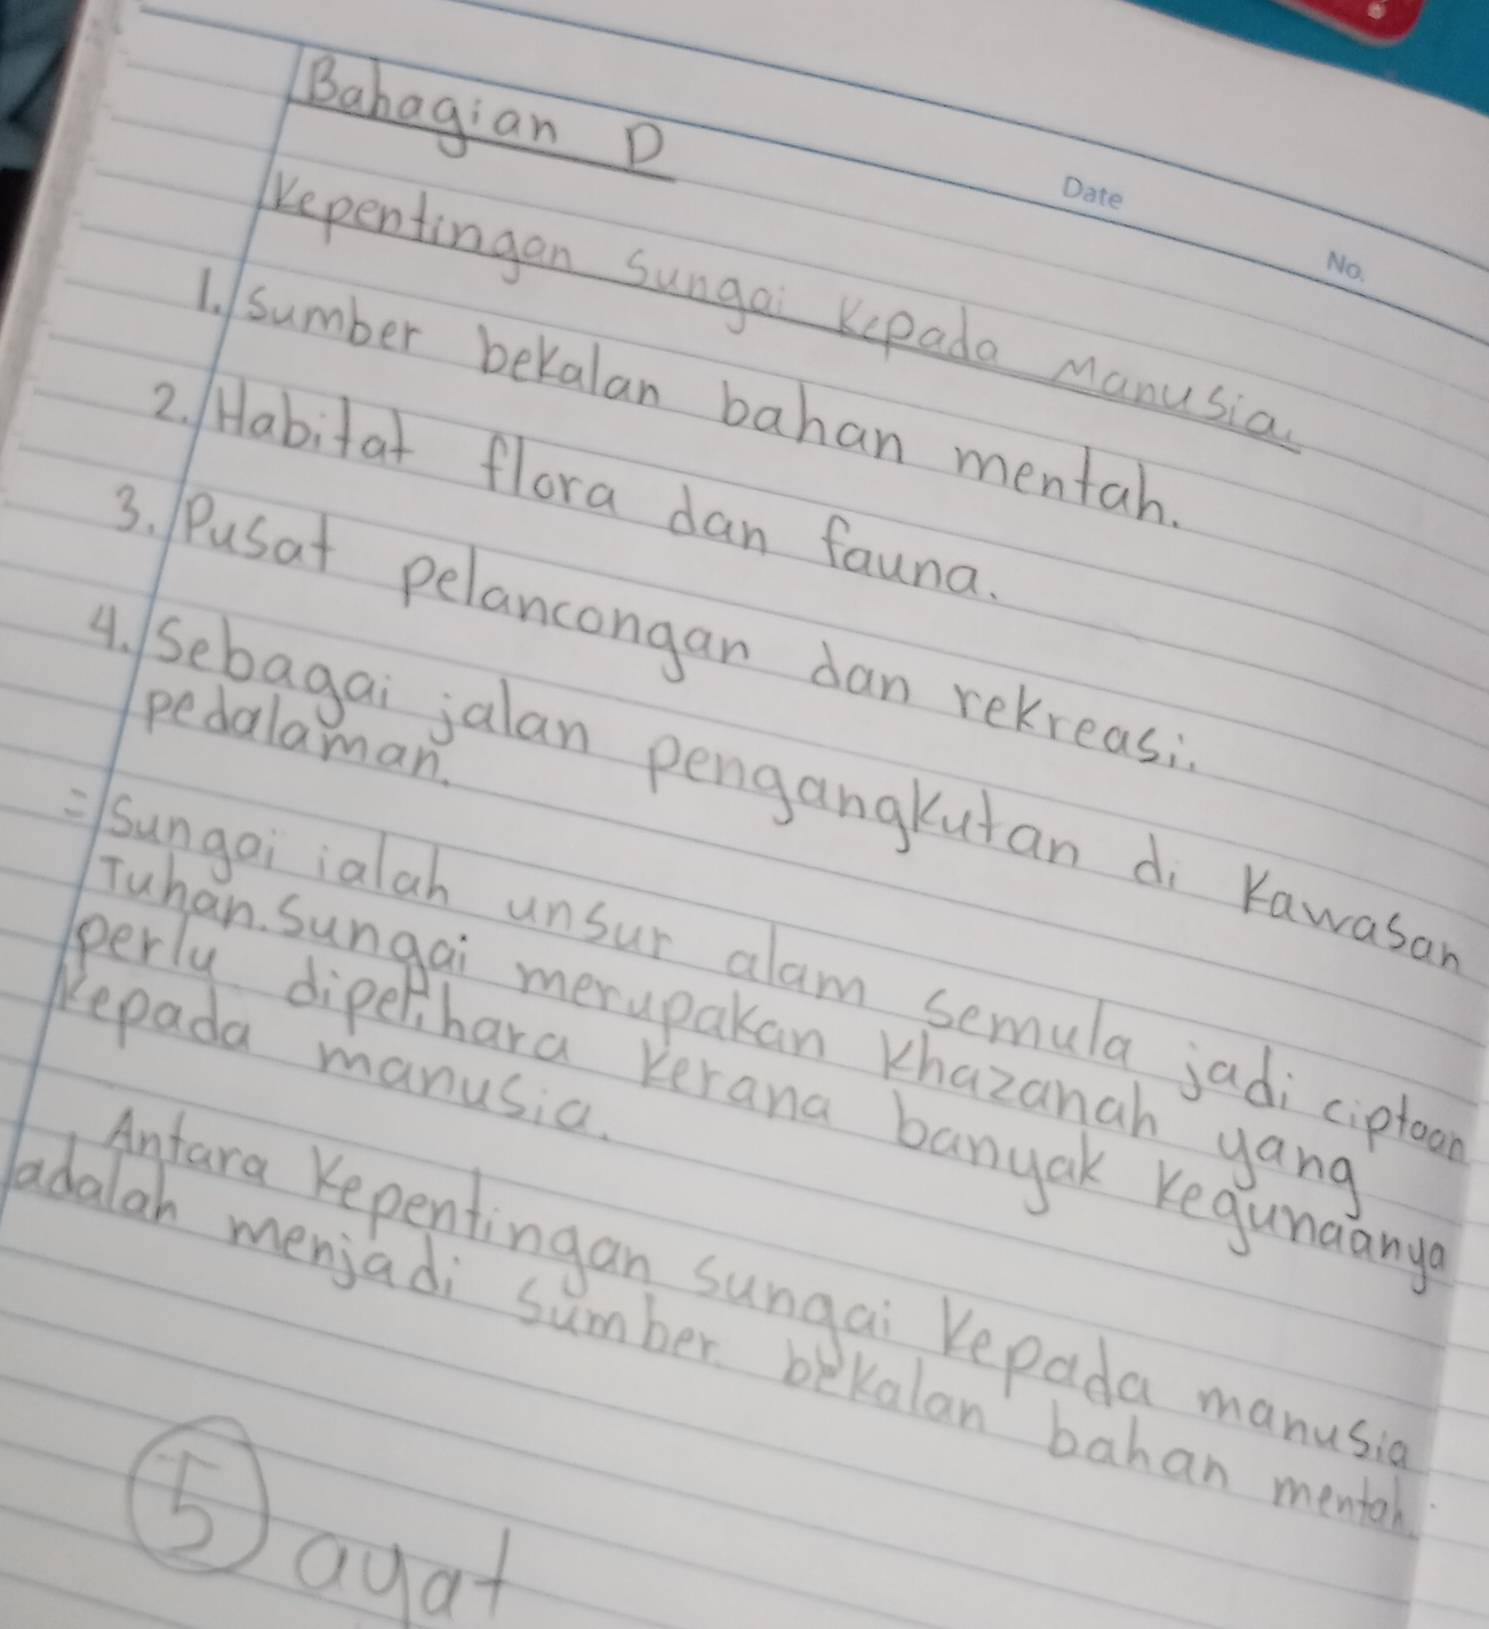 Bahagian D
Date
No.
Kepentingan Sungai Kepada Manusia
1. Sumber bekalan bahan mentah.
2. Habitat flora dan fauna.
3. Pusat pelancongan dan rekreasi.
4. Sebagai jalan pengangkutan di Kawasan
pedalaman.
= Sungai ialah unsur alam semula jadi ciptaan
Tuhan. Sungai merupakan khazanah yang
perlu dipelihara kerana banyak kegunaanya
kepada manusia.
Antara kepentingan sungai kepada manusia
adalah menjadi sumber bekalan bahan mentah.
5 ayat